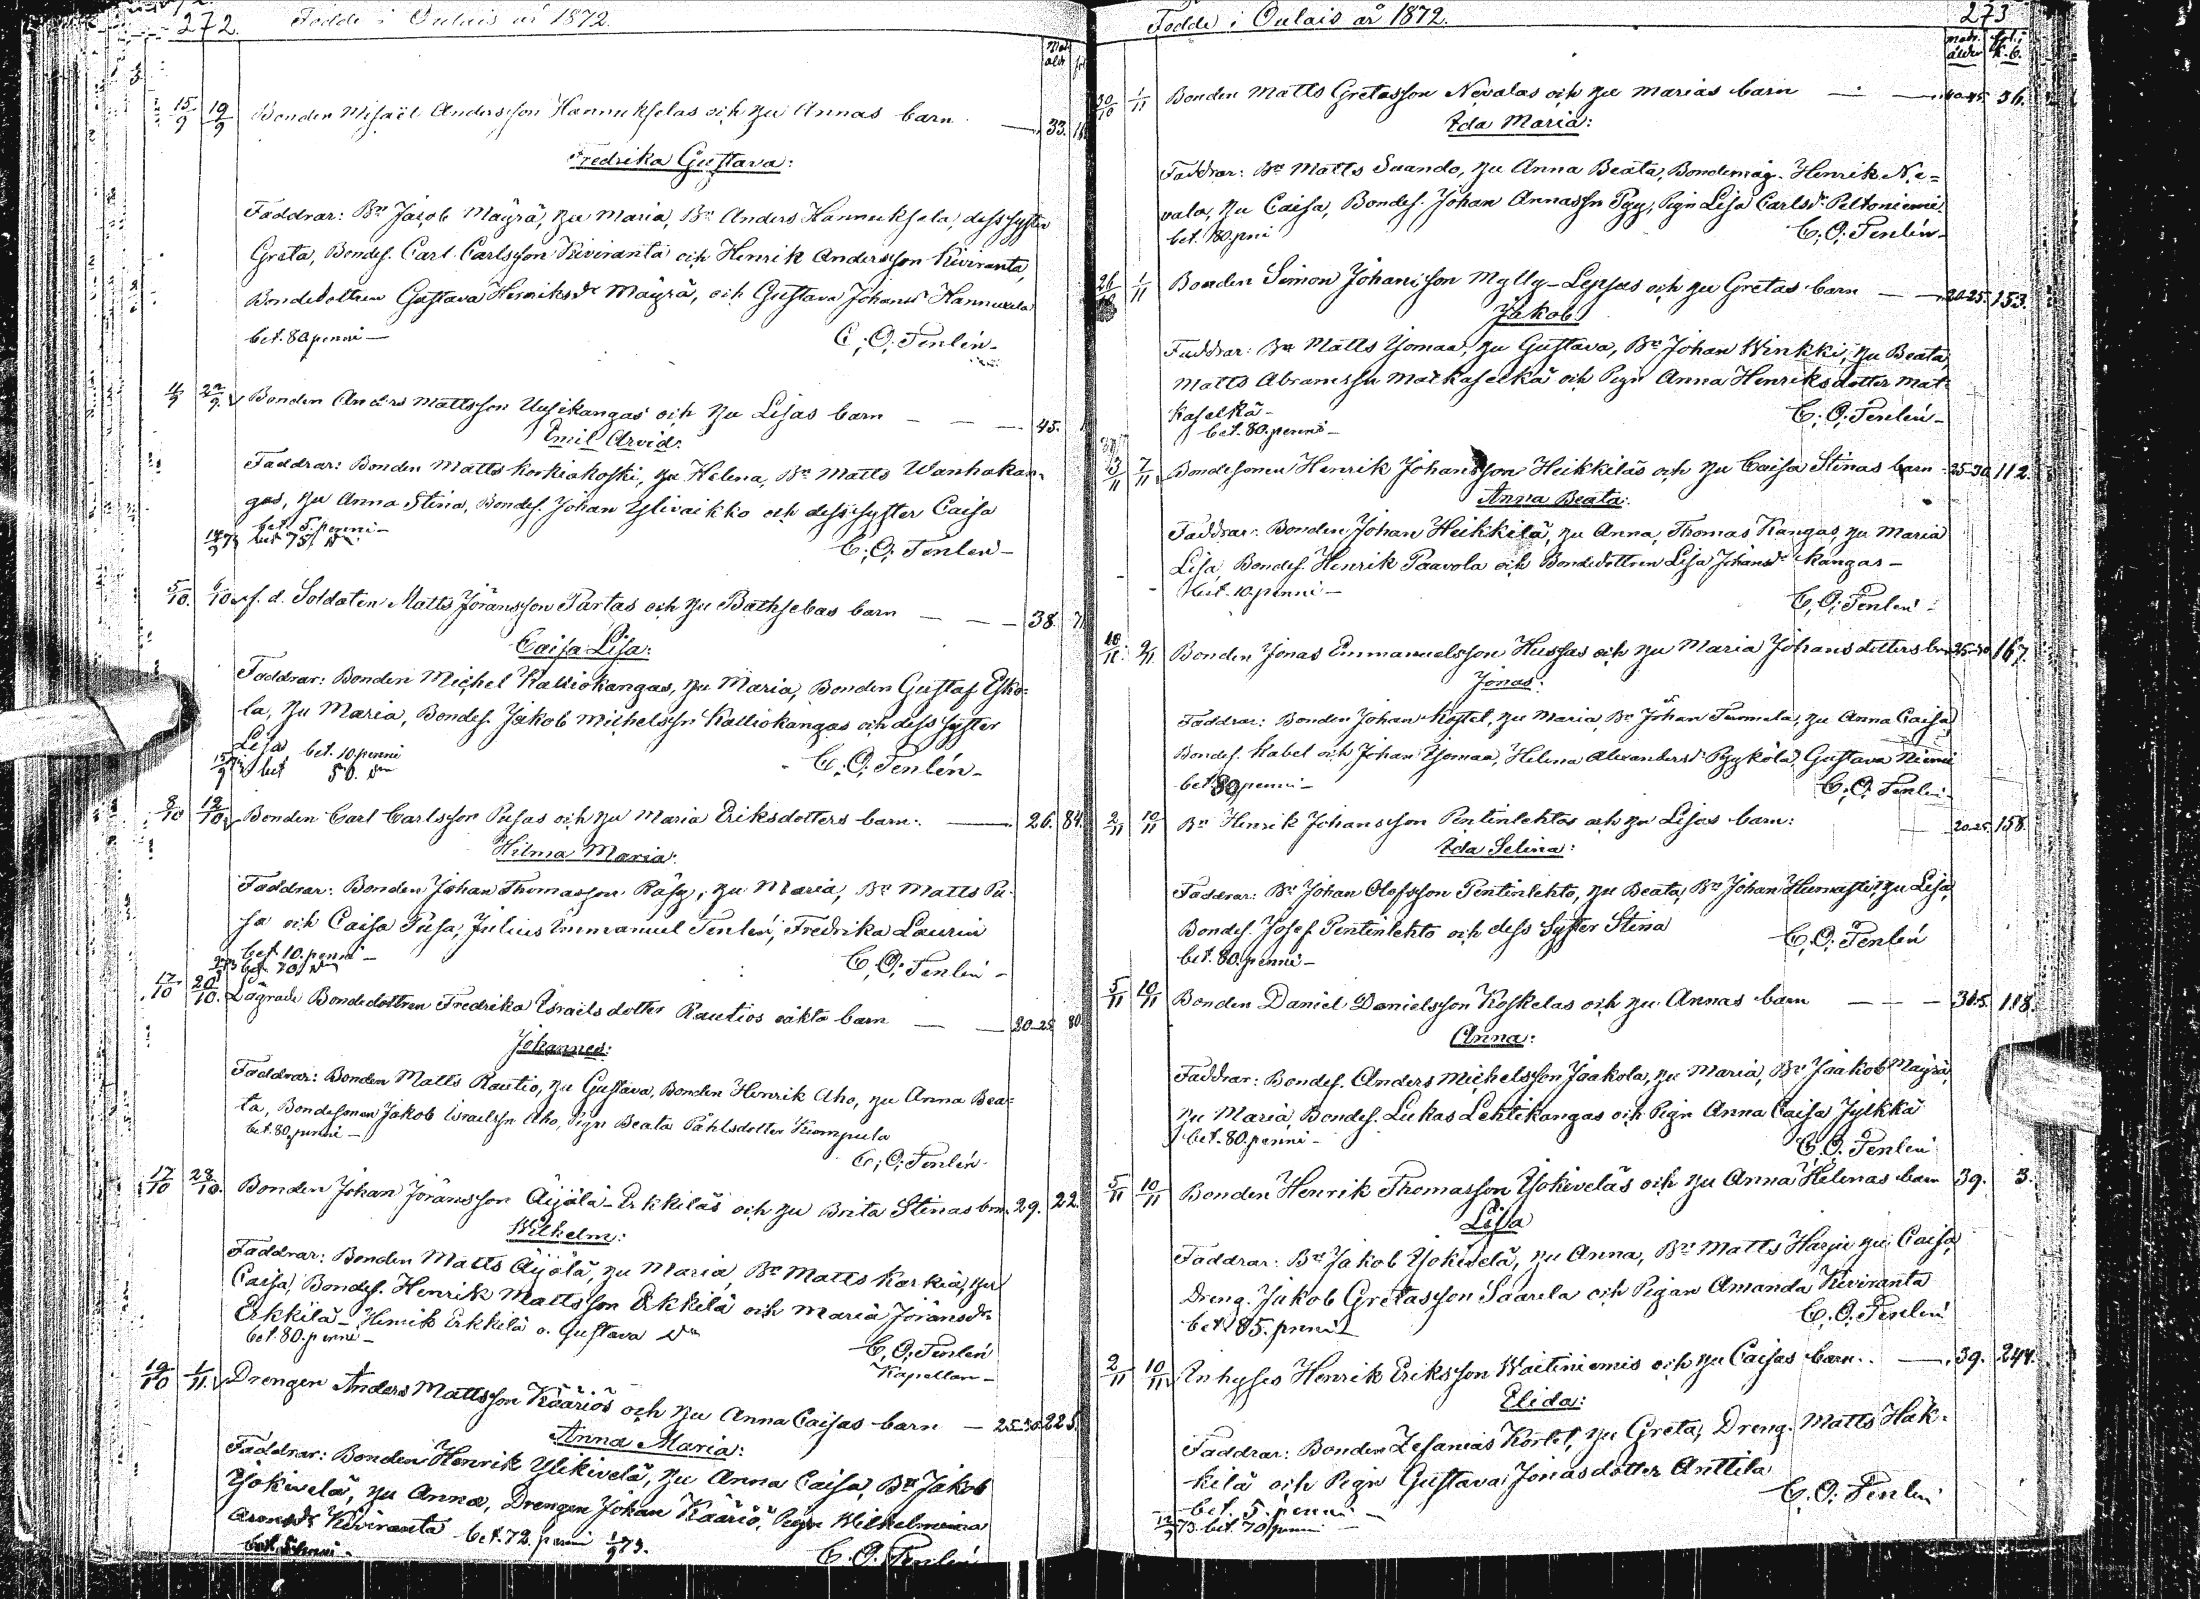 272. Födde i Oulais år 1872.
Mod. åld.
15/9 19/9 Bonden Misaël Andersson Hannukselas och Hu Annas barn — 33.
Fredrika Gustava:
Faddrar: Bn Jacob Mäyrä, Hu Maria, Bn Anders Hannuksela, dess syster
Greta, Bondes. Carl Carlsson Kiviranta och Henrik Andersson Kiviranta,
Bondedottren Gustava Henriksdr Mäyrä, och Gustava Johansdr Hannuksela
bet. 80 penni — C. O. Tenlén.
22/9 Bonden Anders Mattsson Uusikangas och Hu Lisas barn — — — 45.
Emil Arvid:
Faddrar: Bonden Matts Korkiakoski, Hu Helena, Bn Matts Wanhakan-
gas, Hu Anna Stina, Bondes. Johan Ylivaikko och dess syster Caisa
bet. 5. penni — C. O. Tenlén —
5/10. 6/10 f. d. Soldaten Matts Jöransson Partas och Hu Bathsebas barn — — — 38.
Caisa Lisa:
Faddrar: Bonden Michel Kalliokangas, Hu Maria, Bonden Gustaf Esko-
la, Hu Maria, Bondes. Jakob Michelssn Kalliokangas och dess syster
Lisa bet. 10 penni C. O. Tenlén —
bet 50.
8/10 12/10 Bonden Carl Carlsson Pusas och Hu Maria Eriksdotters barn. — 26. 84.
Hilma Maria:
Faddrar: Bonden Johan Thomasson Räsy, Hu Maria, Bn Matts Pu-
sa och Caisa Pusa, Julius Emmanuel Tenlén, Fredrika Laurin
bet 10. penni — C. O. Tenlén —
17/10 20/10. Lägrade Bondedottren Fredrika Israelsdotter Rautios oäkta barn — — 20-25 80.
Johannes:
Faddrar: Bonden Matts Rautio, Hu Gustava, Bonden Henrik Aho, Hu Anna Bea-
ta, Bondesonen Jakob Israelssn Aho, Pign Beata Påhlsdotter Kumpula
bet. 80. penni — C. O. Tenlén.
17/10 28/10. Bonden Johan Jöransson Äijälä-Erkkiläs och Hu Brita Stinas brn. 29. 22.
Wilhelm:
Faddrar: Bonden Matts Äijälä, Hu Maria, Bn Matts Korkia, Hu
Caisa, Bondes. Henrik Mattsson Erkkilä och Maria Jöransdr
Erkkilä — Henrik Erkkilä o. Gustava dn
bet. 80. penni — C. O. Tenlén
Kapellan —
19/10 1/11. Drengen Anders Mattsson Kääriös och Hu Anna Caisas barn — 25-30 225.
Anna Maria:
Faddrar: Bonden Henrik Ylikivelä, Hu Anna Caisa, Bn Jakob
Yjokivelä, Hu Anna, Drengen Johan Kääriö, Pign Wilhelmina
Aronsdr Kiviranta bet. 72. penni 1/9 73.
C. O. Tenlén
Födde i Oulais år 1872. 273
modr. ålder fol. i K. b.
30/10 1/11 Bonden Matts Gretasson Nevalas och Hu Marias barn — — 40-45 36.
Ida Maria:
Faddrar: Bn Matts Suando, Hu Anna Beata, Bondemåg. Henrik Ne-
vala, Hu Caisa, Bondes. Johan Annassn Pyy, Pign Lisa Carlsdr Peltoniemi.
bet. 80. pni C. O. Tenlén —
26/10 1/11 Bonden Simon Johansson Mylly-Lepsas och Hu Gretas barn — — 20-25. 153.
Jakob:
Faddrar: Bn Matts Yomaa, Hu Gustava, Bn Johan Winkki, Hu Beata,
Matts Abramssn Matkaselkä och Pign Anna Henriksdotter Mat-
kaselkä — C. O. Tenlén —
bet. 80. penni —
3/11 7/11 Bondesonen Henrik Johansson Heikkiläs och Hu Caisa Stinas barn — 25-30 112.
Anna Beata:
Faddrar: Bonden Johan Heikkilä, Hu Anna, Thomas Kangas, Hu Maria
Lisa, Bondes. Henrik Paavola och Bondedottren Lisa Johansdr Kangas —
bet. 10. penni — C. O. Tenlén.
Bonden Jonas Emmanuelsson Hussas och Hu Maria Johansdotters brn 25-30 167.
Jonas:
Faddrar: Bonden Johan Kastel, Hu Maria, Bn Johan Tuomela, Hu Anna Caisa,
Bondes. Kabel och Johan Yomaa, Helena Alexandersdr Pyykölä, Gustava Niemi
bet. 80 penni — C. O. Tenlén.
2/11 10/11 Bn Henrik Johansson Pentinlehtos och Hu Lisas barn: — 20-25. 158.
Ida Selina:
Faddrar: Bn Johan Olofsson Pentinlehto, Hu Beata, Bn Johan Huumasti, Hu Lisa,
Bondes. Josef Pentinlehto och dess Syster Stina C. O. Tenlén
bet. 80. penni —
5/11 10/11 Bonden Daniel Danielsson Koskelas och Hu Annas barn — — — 118.
Anna:
Faddrar: Bondes. Anders Michelsson Jaakola, Hu Maria, Bn Jaakob Mäyrä,
Hu Maria, Bondes. Lukas Lehtikangas och Pign Anna Caisa Jylkkä
bet. 80. penni — C. O. Tenlén
5/11 10/11 Bonden Henrik Thomasson Yjokiveläs och Hu Anna Helenas barn 39. 3.
Lisa
Faddrar: Bn Jakob Yjokivelä, Hu Anna, Bn Matts Harju, Hu Caisa,
Dreng. Jakob Gretasson Saarela och Pigan Amanda Kiviranta
bet. 85. penni C. O. Tenlén
2/11 10/11 Inhyses Henrik Eriksson Waitiniemis och Hu Caisas barn. — 39. 244.
Elida:
Faddrar: Bonden Zefanias Körtel, Hu Greta, Dreng. Matts Hak-
kilä och Pign Gustava Jonasdotter Anttila
bet. 5. penni — C. O. Tenlén
73. bet. 70 penni —